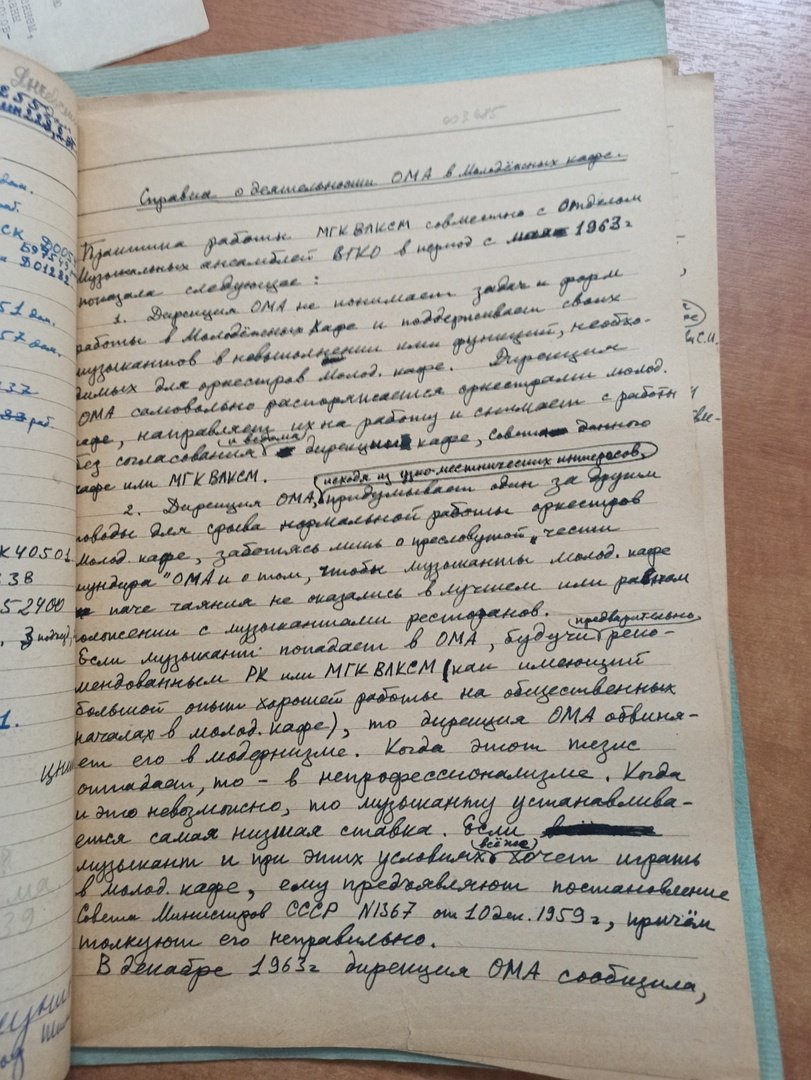 003685
Справка о деятельности ОМА в Молодёжных кафе.
Практика работы МГК ВЛКСМ совместно с Отделом
Музыкальных ансамблей ВГКО в период с 1963г
показала следующее:
1. Дирекция ОМА не понимает задач и форм
работы в Молодёжных Кафе и поддерживает своих
музыкантов в невыполнении ими функций, необхо-
димых для оркестров молод. кафе. Дирекция
ОМА самовольно распоряжается оркестрами молод.
кафе, направляет их на работу и снимает с работы
без согласования и ведома дирекции кафе, совета данного
кафе или МГК ВЛКСМ.
2. Дирекция ОМА, исходя из узко-местнических интересов, придумывает один за другим
поводы для срыва нормальной работы оркестров
молод. кафе, заботясь лишь о пресловутой „чести
мундира" ОМА и о том, чтобы музыканты молод. кафе
паче чаяния не оказались в лучшем или равном
положении с музыкантами ресторанов.
Если музыкант попадает в ОМА, будучи предварительно реко-
мендованным РК или МГК ВЛКСМ (как имеющий
большой опыт хорошей работы на общественных
началах в молод. кафе), то дирекция ОМА обвиня-
ет его в модернизме. Когда этот тезис
отпадает, то - в непрофессионализме. Когда
и это невозможно, то музыканту устанавлива-
ется самая низшая ставка. Если
музыкант и при этих условиях всё же хочет играть
в молод. кафе, ему предъявляют постановление
Совета Министров СССР N1367 от 10 дек. 1959г, причём
толкуют его неправильно.
В декабре 1963г дирекция ОМА сообщила,